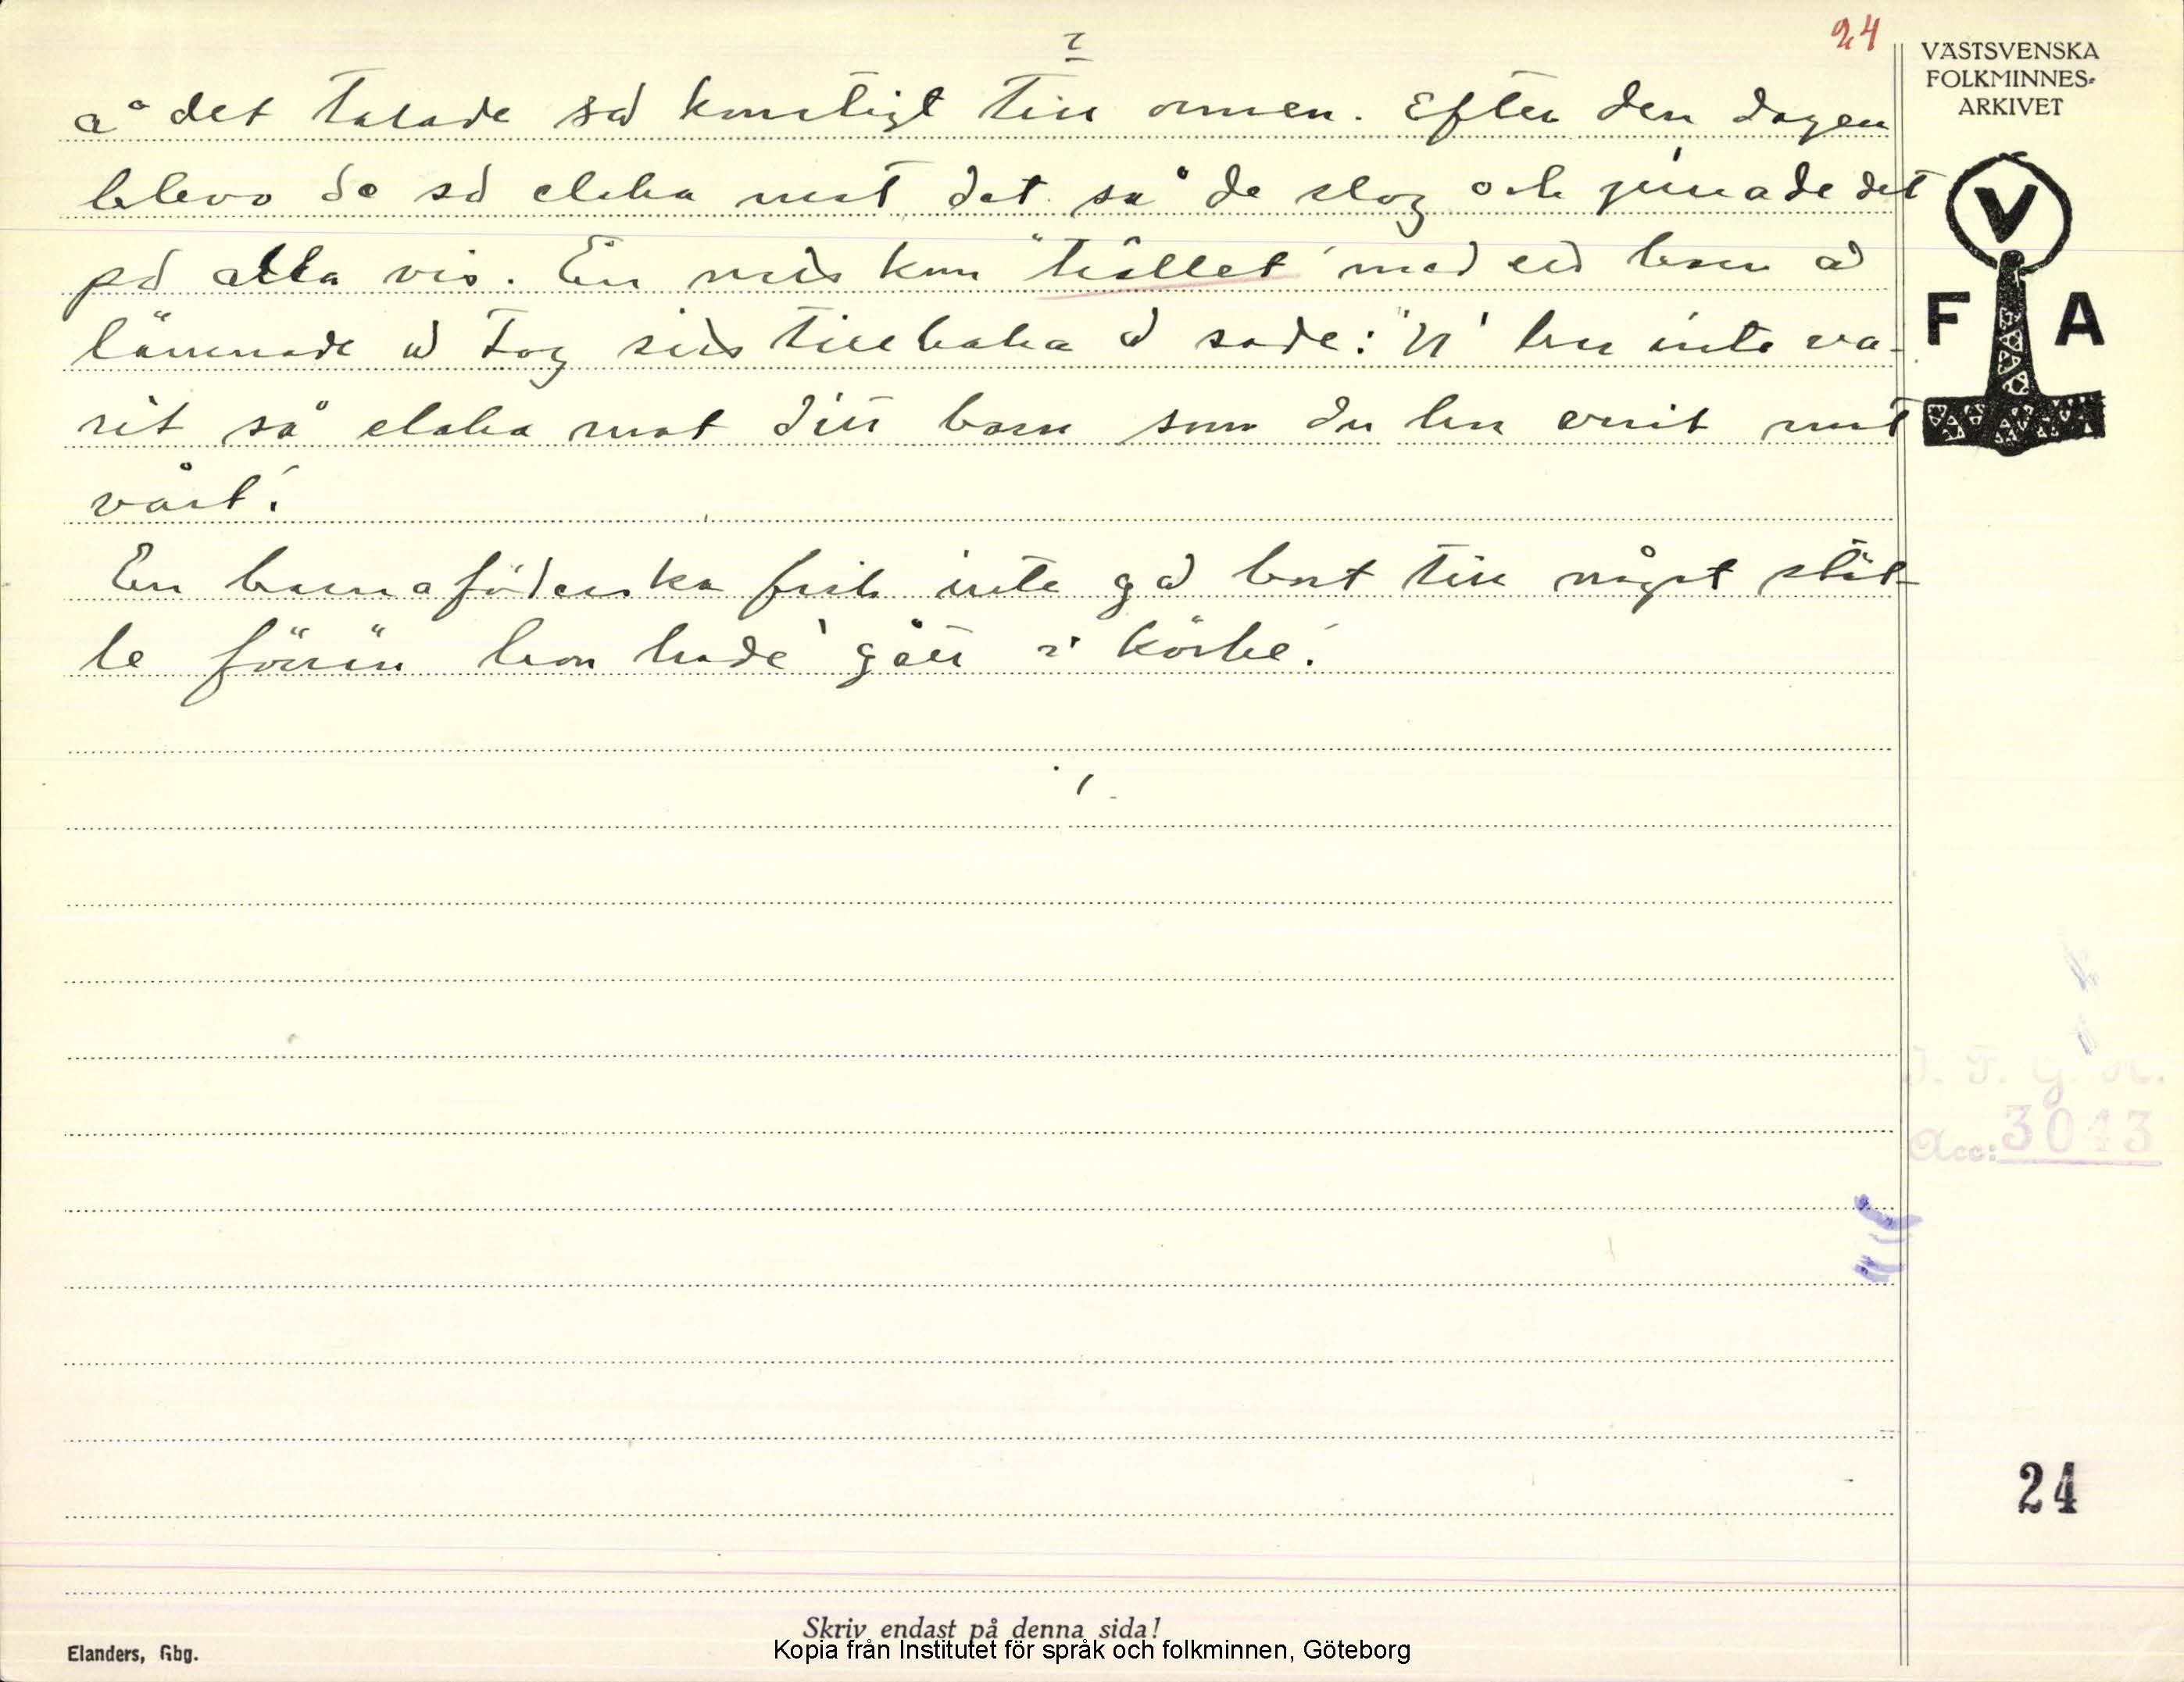 2
24
å det talade så konstigt till onnen. Efter den dagen
blevo de så elaka mot det så de slog och pinade det
på alla vis. En nätt kom "trållet" med ett barn å
lämnade å tog sitt tillbaka å sade: "Vi har inte va-
rit så elaka mot ditt barn som du har varit mot
vårt."
En barnaföderska fick inte gå bort till något stäl-
le förrän hon hade "gått i körke".
VÄSTSVENSKA
FOLKMINNES-
ARKIVET
V
F A
I. F. G. H.
Acc: 3043
24
Skriv endast på denna sida!
Kopia från Institutet för språk och folkminnen, Göteborg
Elanders, Gbg.